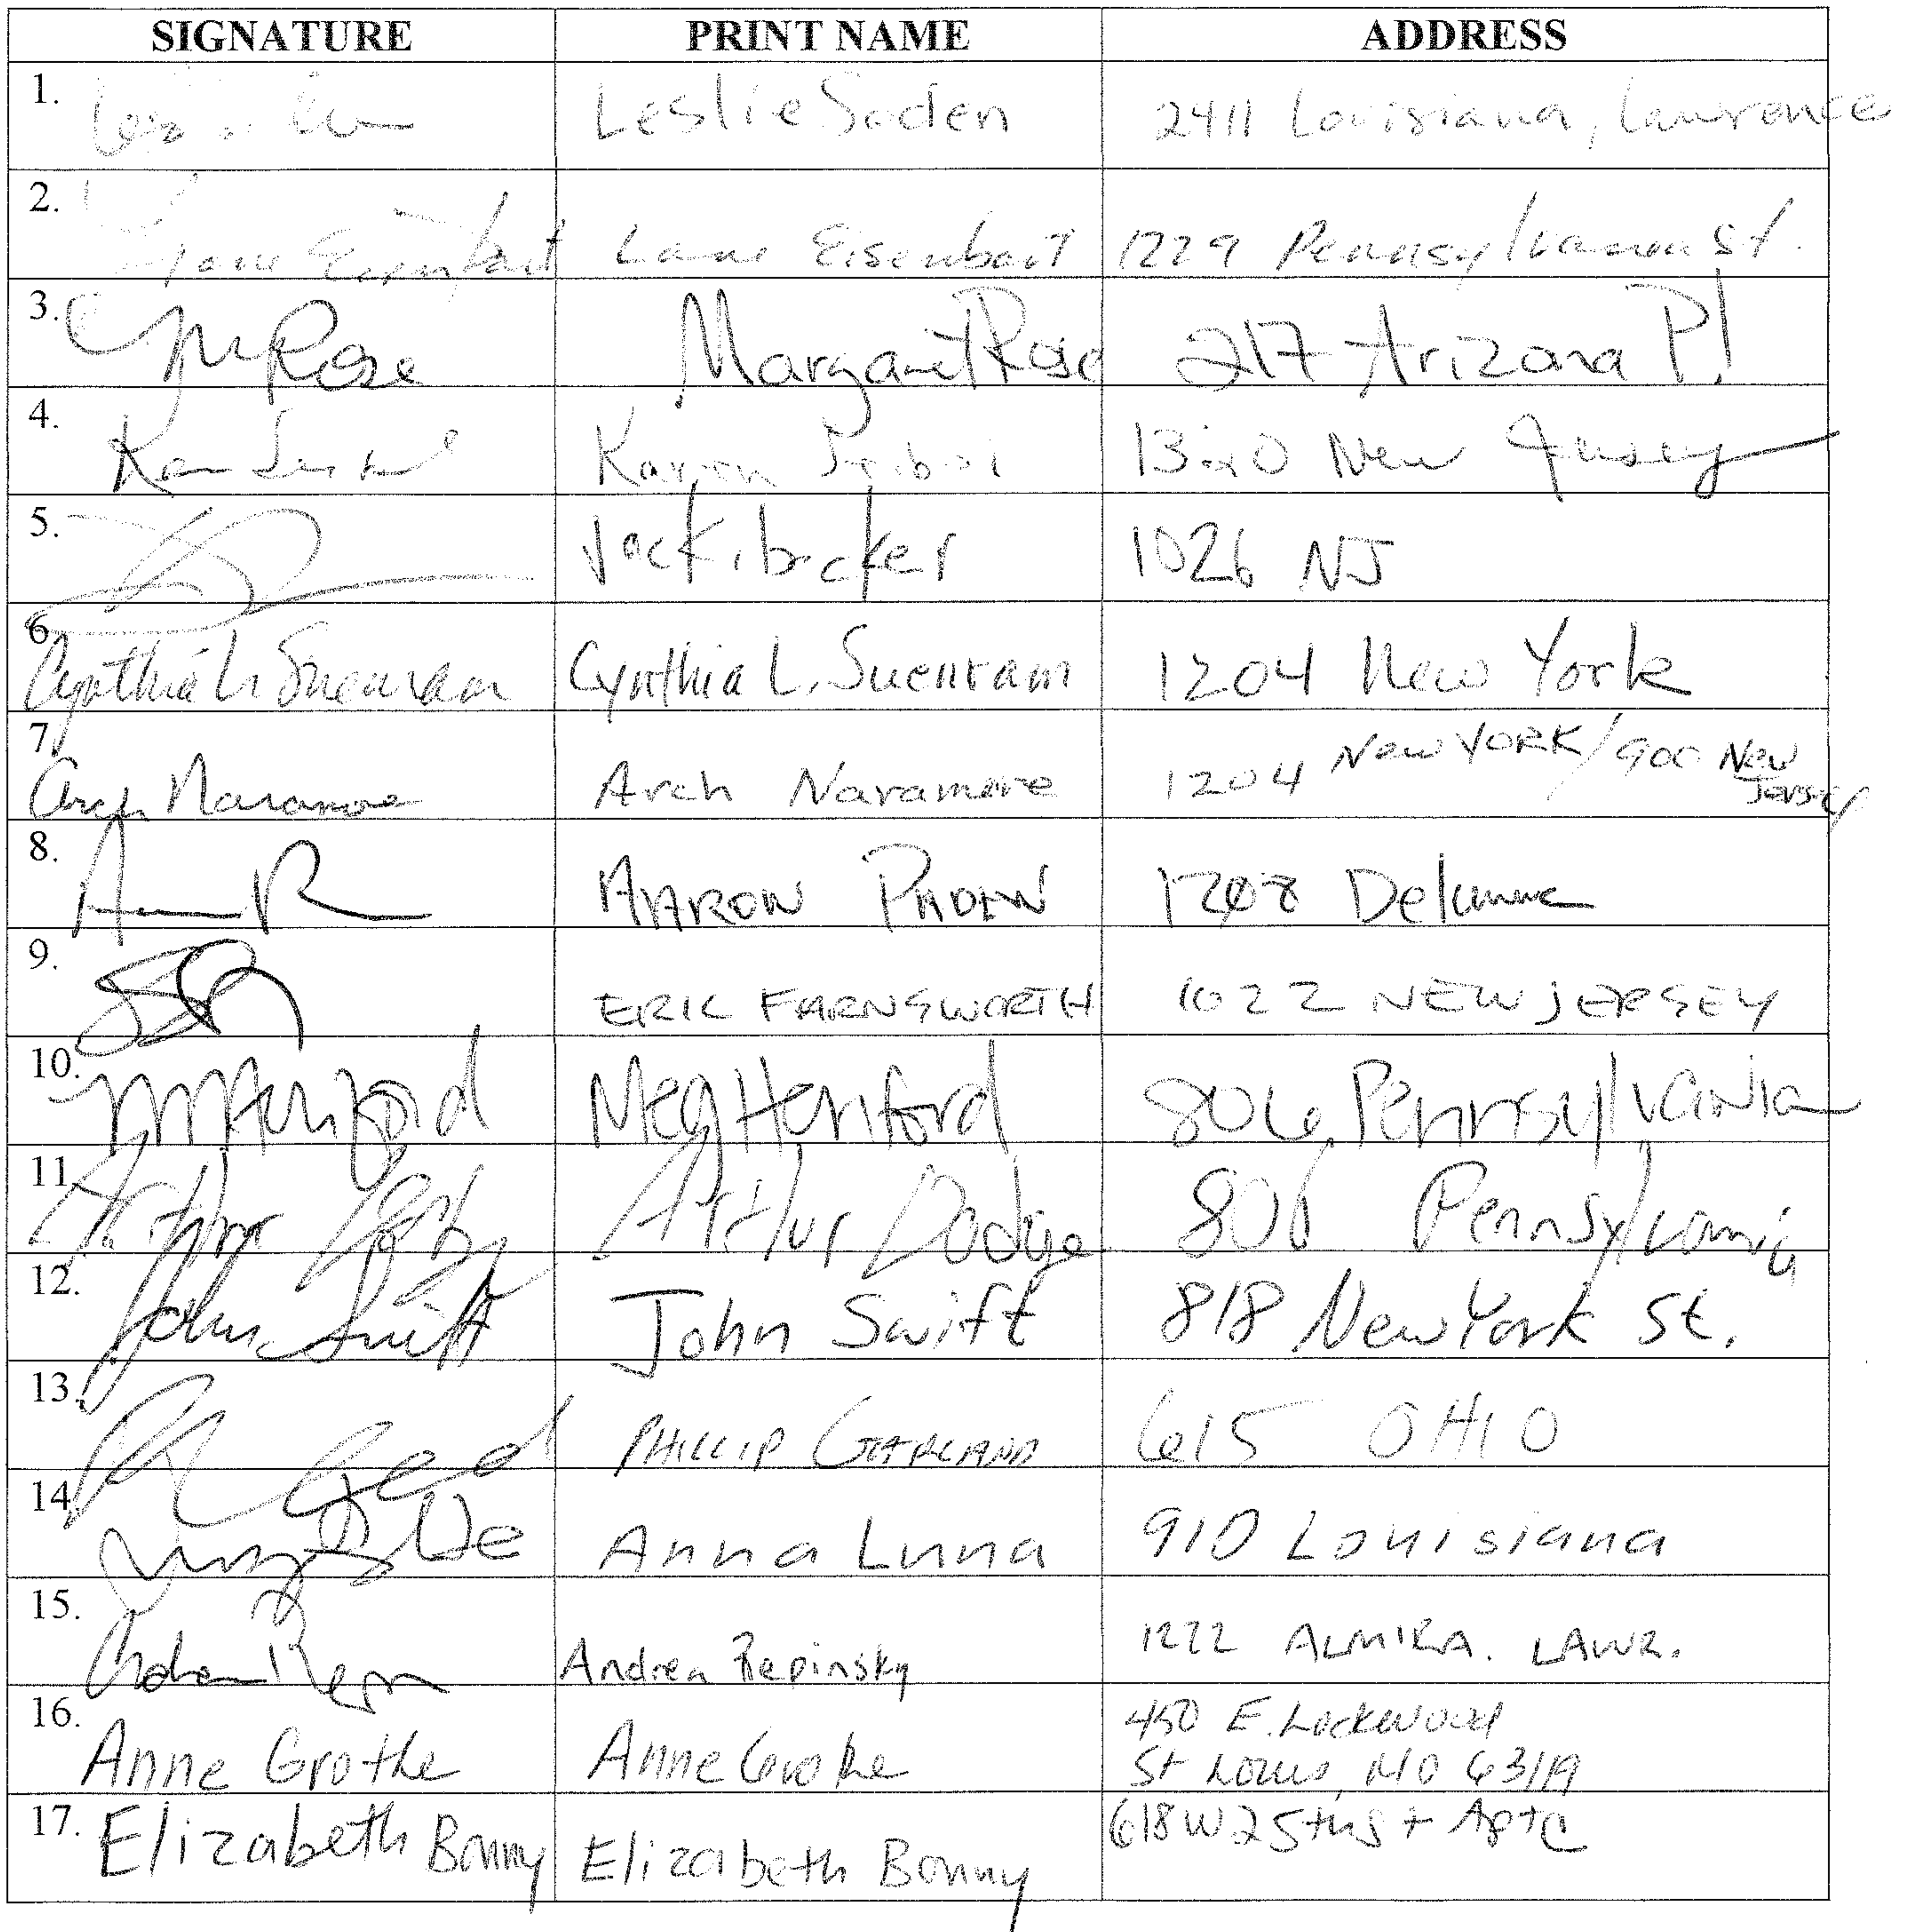 SIGNATURE PRINT NAME ADDRESS
1. Leslie Soden 2411 Louisiana, Lawrence
2. Lane Eisenbart Lane Eisenbart 1229 Pennsylvania St.
3. M Rose Margaret Rose 217 Arizona Pl
4. Karen 1320 New Jersey
5. Jacki becker 1026 NJ
6. Cynthia L. Suenram Cynthia L. Suenram 1204 New York
7. Arch Naramore Arch Naramore 1204 New YORK/900 New
Jersey
8. AARON PADEN 1208 Delaware
9. ERIC FARNSWORTH 1022 NEW JERSEY
10. MHenford Meg Henford 806 Pennsylvania
11. Arthur Dodge Arthur Dodge 806 Pennsylvania
12. John Swift John Swift 818 New York St.
13. PHILLIP GARLAND 615 OHIO
14. Anna Luna 910 Louisiana
15. Andrea Repinsky 1222 ALMIRA. LAWR.
16. Anne Grothe Anne Grothe 450 E. Lockwood
St Louis, MO 63119
17. Elizabeth Bonny Elizabeth Bonny 618 W 25th St Apt C